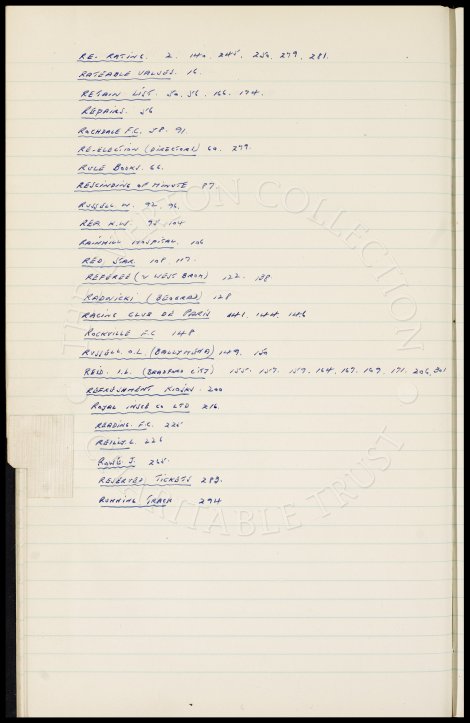 RE- RATING. 2. 140. 245. 250. 279. 281.
RATEABLE VALUES. 16.
RETAIN LIST. 50. 56. 166. 174.
REPAIRS. 56
ROCHDALE F.C. 58. 91.
RE-ELECTION (DIRECTORS) 60. 279.
RULE BOOKS. 66.
RESCINDING OF MINUTE 87.
RUSSELL. W. 92. 96.
REP. K.W. 98. 104
RAINHILL HOSPITAL. 106
RED. STAR. 108. 117.
REFEREE (v WEST BROM) 122. 138.
RADNICKI (BEOGRAD) 128
RACING CLUB DE PARIS 141. 144. 146
ROCKVILLE F.C 148
RUSSELL. O.L. (BALLYMENA) 149. 150
REID. I.L. (BRADFORD CITY) 155. 157. 159. 164. 167. 169. 171. 206. 301
REFRESHMENT KIOSKS. 200
ROYAL INSCE CO LTD 216.
READING. F.C. 225
REILLY. L. 226
ROWE J. 265.
RESERVED TICKETS 283.
RUNNING TRACK 294
COLLECTION
CHARITABLE TRUST